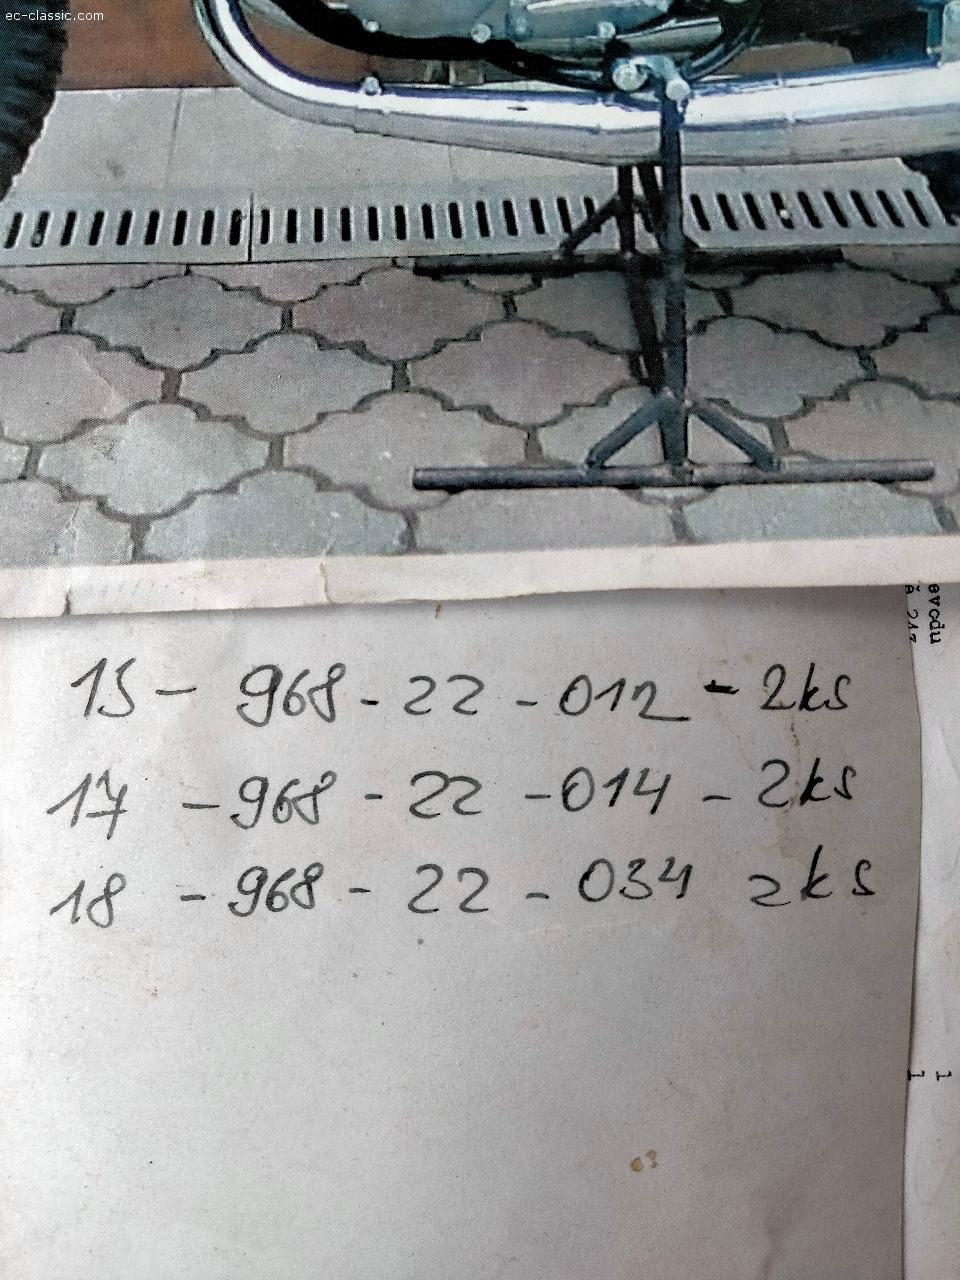 ec-classic.com
15 - 968 - 22 - 012 - 2ks
17 - 968 - 22 - 014 - 2ks
18 - 968 - 22 - 034 2ks
evodu
1
1